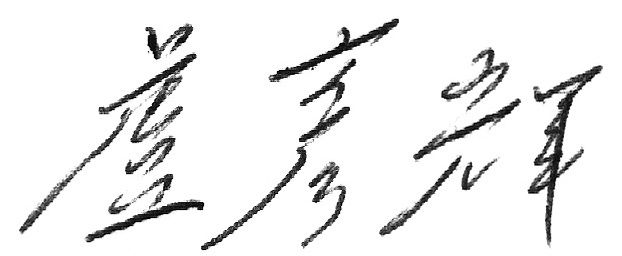 盧彥輝